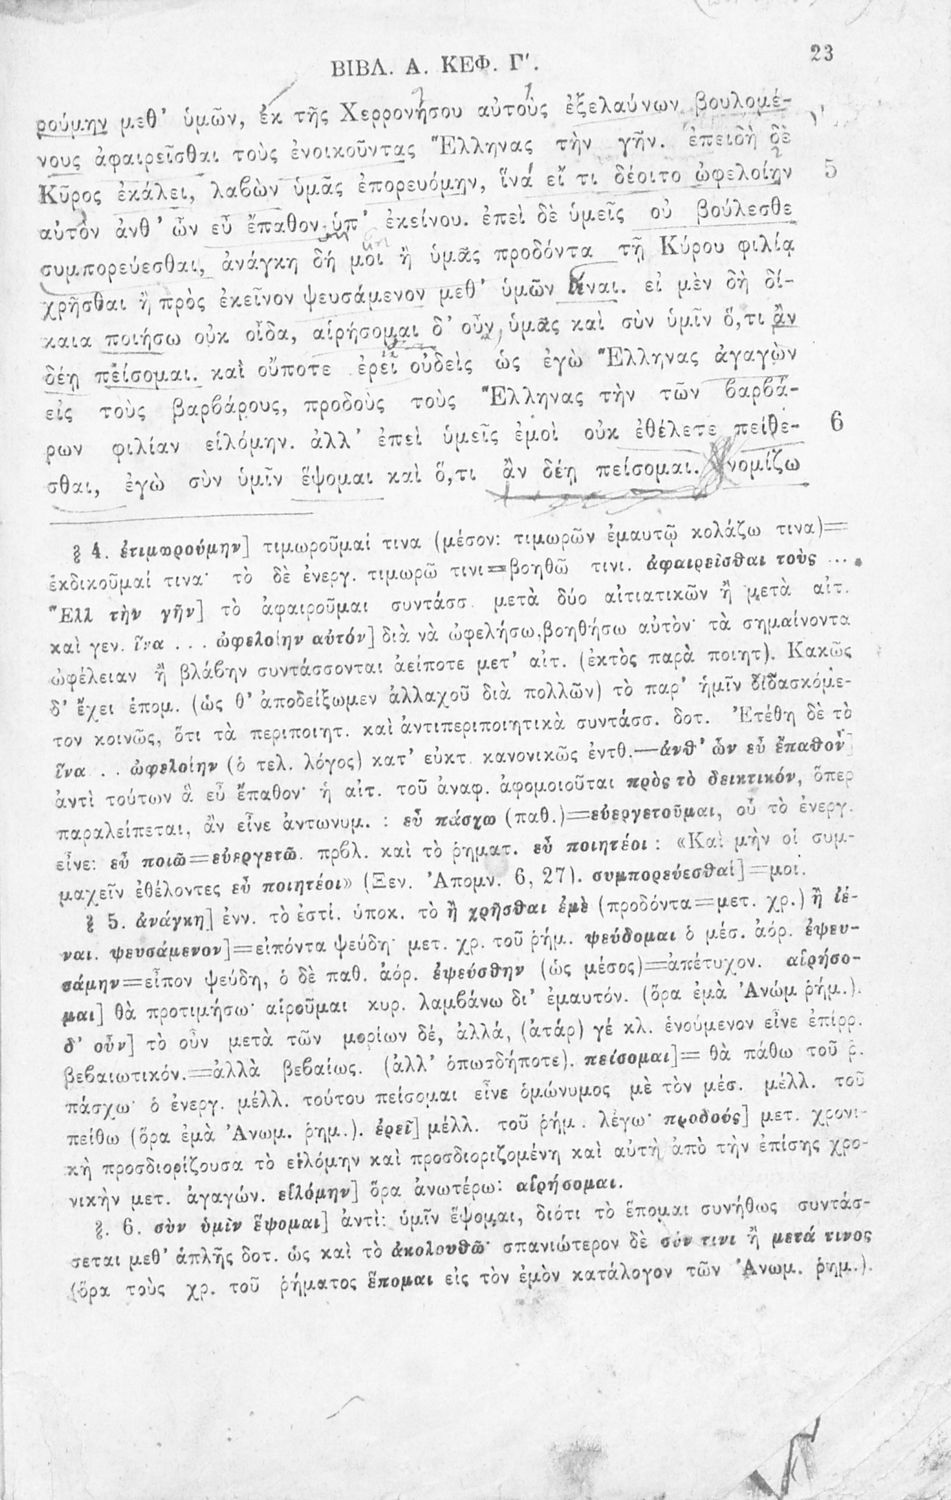 ΒΙΒΛ. Α. ΚΕΦ. Γʹ. 23
ρούμην μεθ’ ὑμῶν, ἐκ τῆς Χερρονήσου αὐτοὺς ἐξελαύνων βουλομέ-
νους ἀφαιρεῖσθαι τοὺς ἐνοικοῦντας Ἕλληνας τὴν γῆν. ἐπειδὴ δὲ
Κῦρος ἐκάλει, λαβὼν ὑμᾶς ἐπορευόμην, ἵνα εἴ τι δέοιτο ὠφελοίην 5
αὐτὸν ἀνθ’ ὧν εὖ ἔπαθον ὑπ’ ἐκείνου. ἐπεὶ δὲ ὑμεῖς οὐ βούλεσθε
συμπορεύεσθαι, ἀνάγκη δή μοι ἢ ὑμᾶς προδόντα τῇ Κύρου φιλίᾳ
χρῆσθαι ἢ πρὸς ἐκεῖνον ψευσάμενον μεθ’ ὑμῶν ἰέναι. εἰ μὲν δὴ δί-
καια ποιήσω οὐκ οἶδα, αἱρήσομαι δ’ οὖν ὑμᾶς καὶ σὺν ὑμῖν ὅ,τι ἂν
δέῃ πείσομαι. καὶ οὔποτε ἐρεῖ οὐδεὶς ὡς ἐγὼ Ἕλληνας ἀγαγὼν
εἰς τοὺς βαρβάρους, προδοὺς τοὺς Ἕλληνας τὴν τῶν βαρβά-
ρων φιλίαν εἱλόμην. ἀλλ’ ἐπεὶ ὑμεῖς ἐμοὶ οὐκ ἐθέλετε πείθε- 6
σθαι, ἐγὼ σὺν ὑμῖν ἕψομαι καὶ ὅ,τι ἂν δέῃ πείσομαι. νομίζω
§ 4. ἐτιμωρούμην] τιμωροῦμαί τινα (μέσον: τιμωρῶν ἐμαυτῷ κολάζω τινα)=
ἐκδικοῦμαί τινα· τὸ δὲ ἐνεργ. τιμωρῶ τινι=βοηθῶ τινι. ἀφαιρεῖσθαι τοὺς ...
Ἕλλ τὴν γῆν] τὸ ἀφαιροῦμαι συντάσσ. μετὰ δύο αἰτιατικῶν ἢ μετὰ αἰτ.
καὶ γεν. ἵνα ... ὠφελοίην αὐτόν] διὰ νὰ ὠφελήσω, βοηθήσω αὐτὸν· τὰ σημαίνοντα
ὠφέλειαν ἢ βλάβην συντάσσονται ἀείποτε μετ’ αἰτ. (ἐκτὸς παρὰ ποιητ). Κακῶς
δ’ ἔχει ἑπομ. (ὡς θ’ ἀποδείξωμεν ἀλλαχοῦ διὰ πολλῶν) τὸ παρ’ ἡμῖν διδασκόμε-
τον κοινῶς, ὅτι τὰ περιποιητ. καὶ ἀντιπεριποιητικὰ συντάσσ. δοτ. Ἐτέθη δὲ τὸ
ἵνα . . ὠφελοίην (ὁ τελ. λόγος) κατ’ εὐκτ. κανονικῶς ἐντθ.—ἀνθ’ ὧν εὖ ἔπαθον]
ἀντὶ τούτων ἃ εὖ ἔπαθον· ἡ αἰτ. τοῦ ἀναφ. ἀφομοιοῦται πρὸς τὸ δεικτικόν, ὅπερ
παραλείπεται, ἂν εἶνε ἀντωνυμ. : εὖ πάσχω (παθ.)=εὐεργετοῦμαι, οὗ τὸ ἐνεργ.
εἶνε: εὖ ποιῶ=εὐεργετῶ. πρβλ. καὶ τὸ ῥηματ. εὖ ποιητέοι : «Καὶ μὴν οἱ συμ-
μαχεῖν ἐθέλοντες εὖ ποιητέοι» (Ξεν. Ἀπομν. 6, 27). συμπορεύεσθαι]=μοι.
§ 5. ἀνάγκη] ἐνν. τὸ ἐστί. ὑποκ. τὸ ἢ χρῆσθαι ἐμὲ (προδόντα=μετ. χρ.) ἢ ἰέ-
ναι. ψευσάμενον]=εἰπόντα ψεύδη· μετ. χρ. τοῦ ῥήμ. ψεύδομαι ὁ μέσ. ἀόρ. ἐψευ-
σάμην=εἶπον ψεύδη, ὁ δὲ παθ. ἀόρ. ἐψεύσθην (ὡς μέσος)=ἀπέτυχον. αἱρήσο-
μαι] θὰ προτιμήσω· αἱροῦμαι κυρ. λαμβάνω δι’ ἐμαυτόν. (ὅρα ἐμὰ Ἀνώμ ῥήμ.).
δ’ οὖν] τὸ οὖν μετὰ τῶν μορίων δέ, ἀλλά, (ἀτάρ) γέ κλ. ἑνούμενον εἶνε ἐπίρρ.
βεβαιωτικόν.=ἀλλὰ βεβαίως. (ἀλλ’ ὁπωσδήποτε). πείσομαι]= θὰ πάθω τοῦ ῥ.
πάσχω· ὁ ἐνεργ. μέλλ. τούτου πείσομαι εἶνε ὁμώνυμος μὲ τὸν μέσ. μέλλ. τοῦ
πείθω (ὅρα ἐμὰ Ἀνωμ. ῥημ.). ἐρεῖ] μέλλ. τοῦ ῥήμ. λέγω· προδούς] μετ. χρονι-
κὴ προσδιορίζουσα τὸ εἱλόμην καὶ προσδιοριζομένη καὶ αὐτὴ ἀπὸ τὴν ἐπίσης χρο-
νικὴν μετ. ἀγαγών. εἱλόμην] ὅρα ἀνωτέρω: αἱρήσομαι.
§. 6. σὺν ὑμῖν ἕψομαι] ἀντὶ: ὑμῖν ἕψομαι, διότι τὸ ἕπομαι συνήθως συντάσ-
σεται μεθ’ ἁπλῆς δοτ. ὡς καὶ τὸ ἀκολουθῶ· σπανιώτερον δὲ σύν τινι ἢ μετά τινος
(ὅρα τοὺς χρ. τοῦ ῥήματος ἕπομαι εἰς τὸν ἐμὸν κατάλογον τῶν Ἀνωμ. ῥημ.).